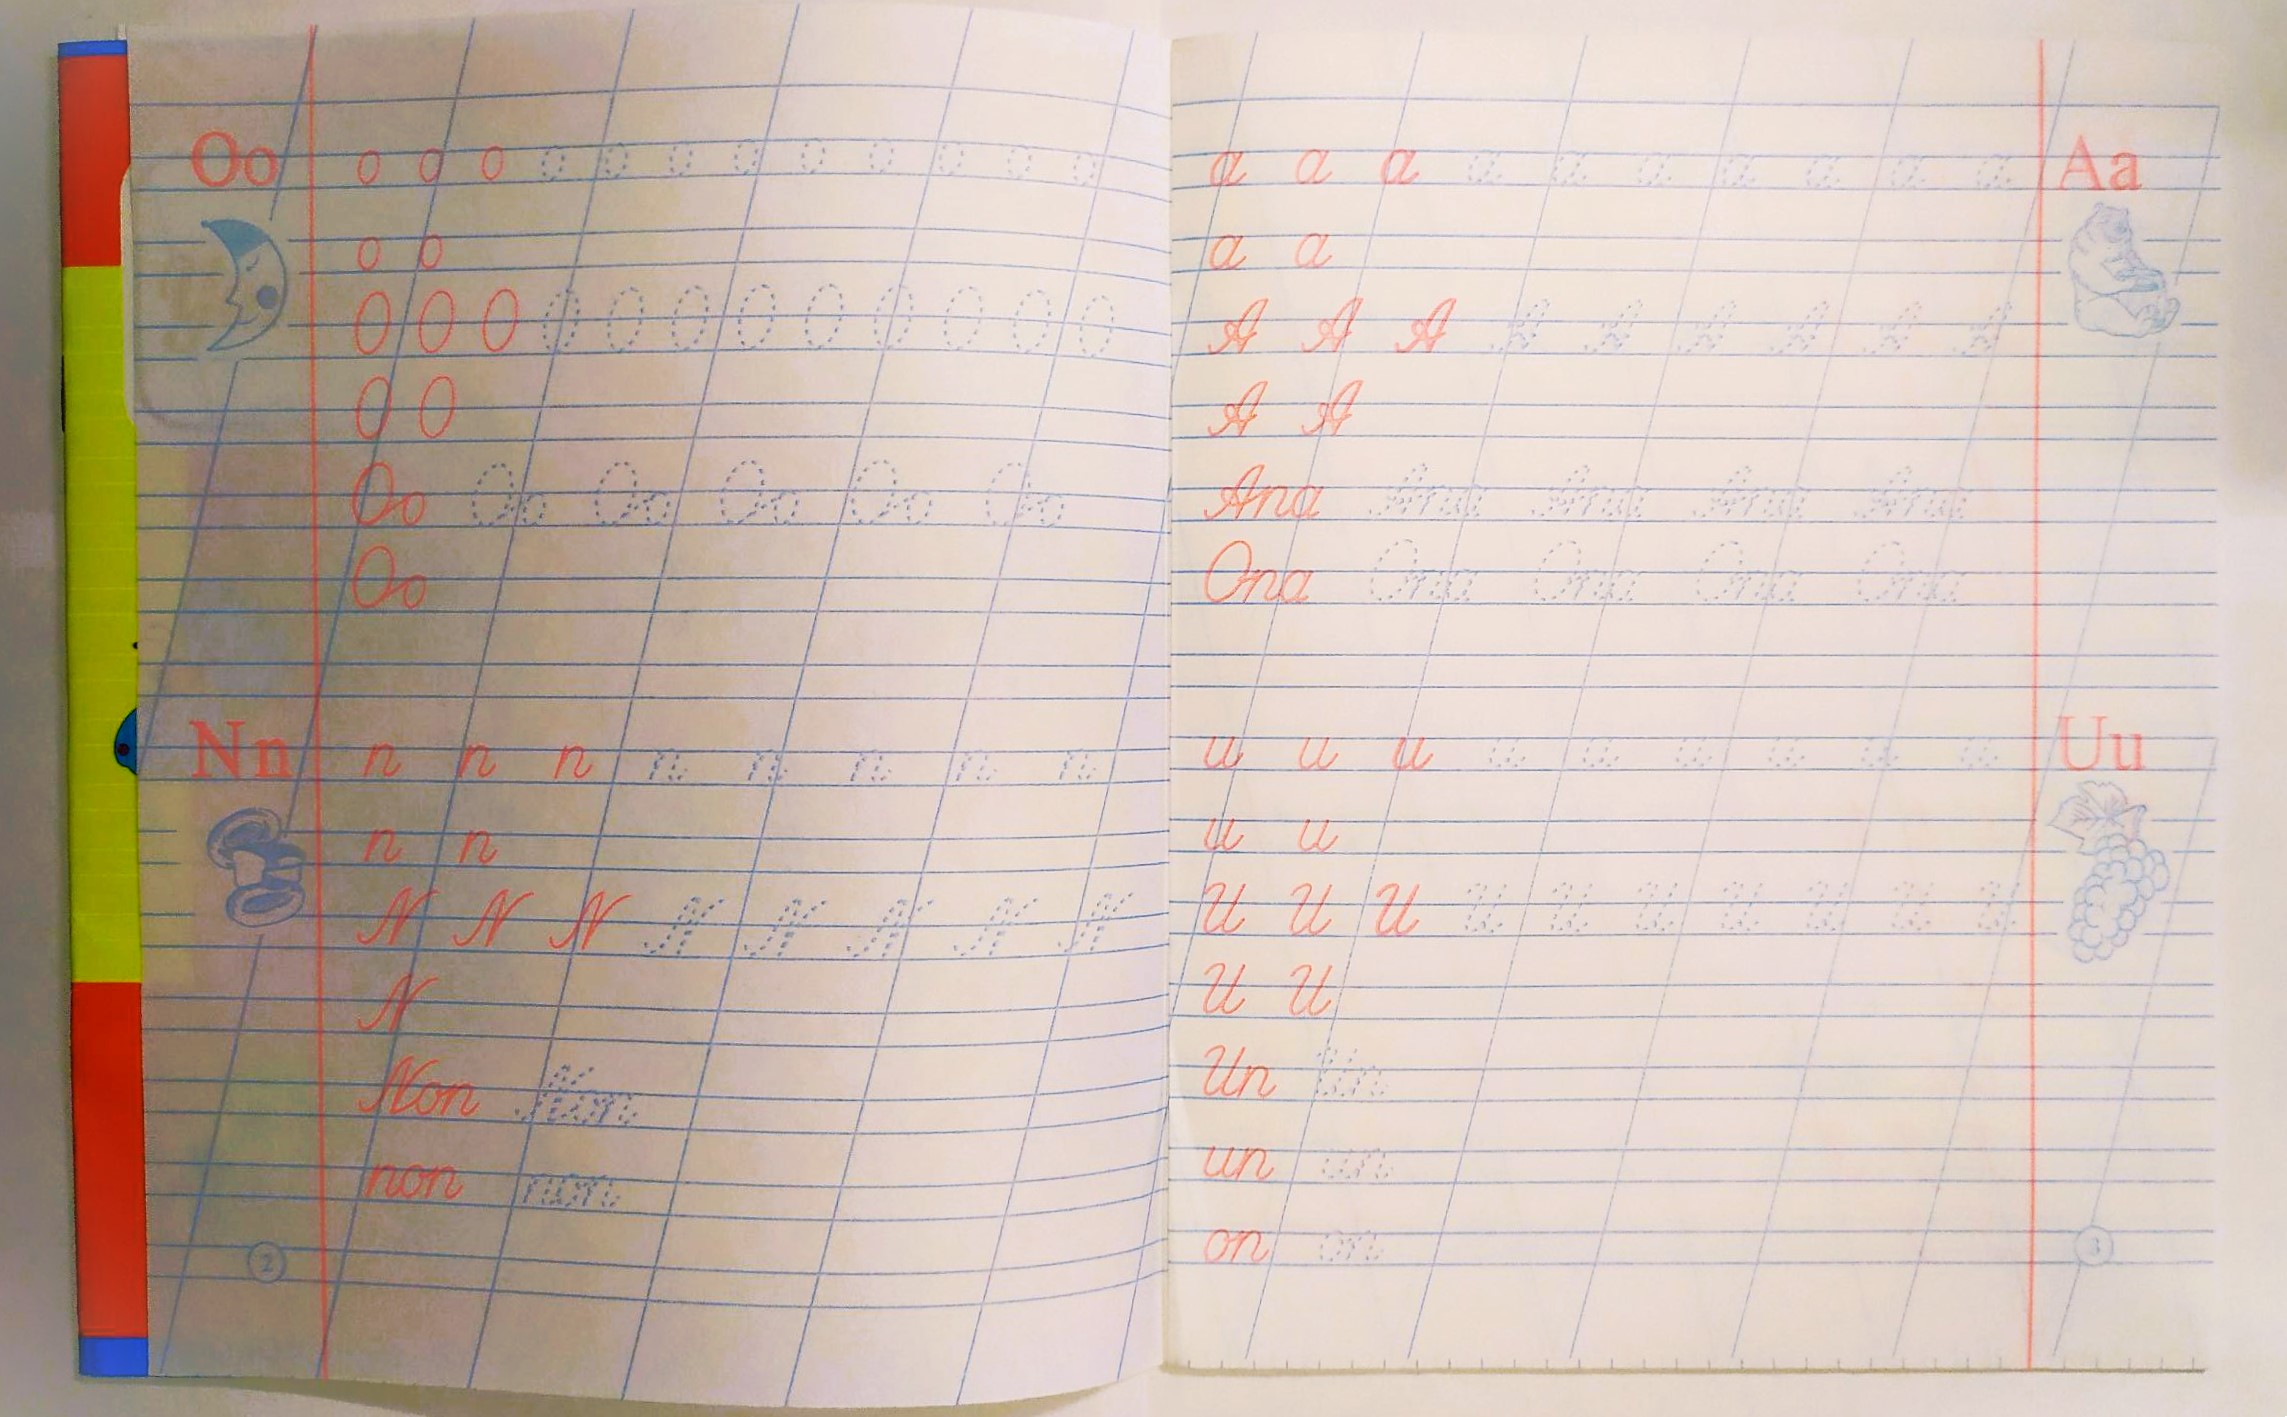 Oo o o o o o o o o o o o o
o o
O O O O O O O O O O O O
O O
Oo Oo Oo Oo Oo Oo
Oo
Nn n n n n n n n n
n n
N N N N N N N N
N
Non Non
non non
2
a a a a a a a a a a Aa
a a
A A A A A A A A A
A A
Ana Ana Ana Ana Ana
Ona Ona Ona Ona Ona
u u u u u u u u u Uu
u u
U U U U U U U U U U
U U
Un Un
un un
on on
3